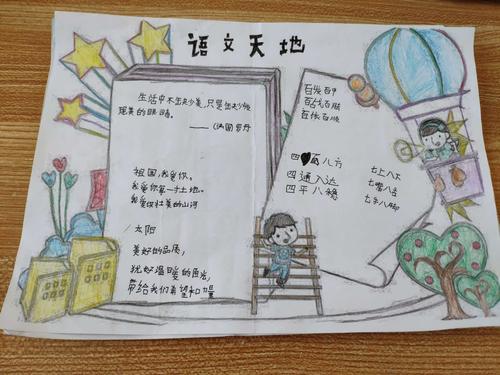 语文天地
生活中不是缺少美,只是缺少发
现美的眼睛。
——(法国)罗丹
祖国,我爱你。
我爱你每一寸土地。
我爱你壮美的山河
太阳
美好的品质,
犹如温暖的阳光,
带给我们希望和力量
百发百中
百战百胜
百依百顺
四面八方
四通八达
四平八稳
七上八下
七嘴八舌
七手八脚